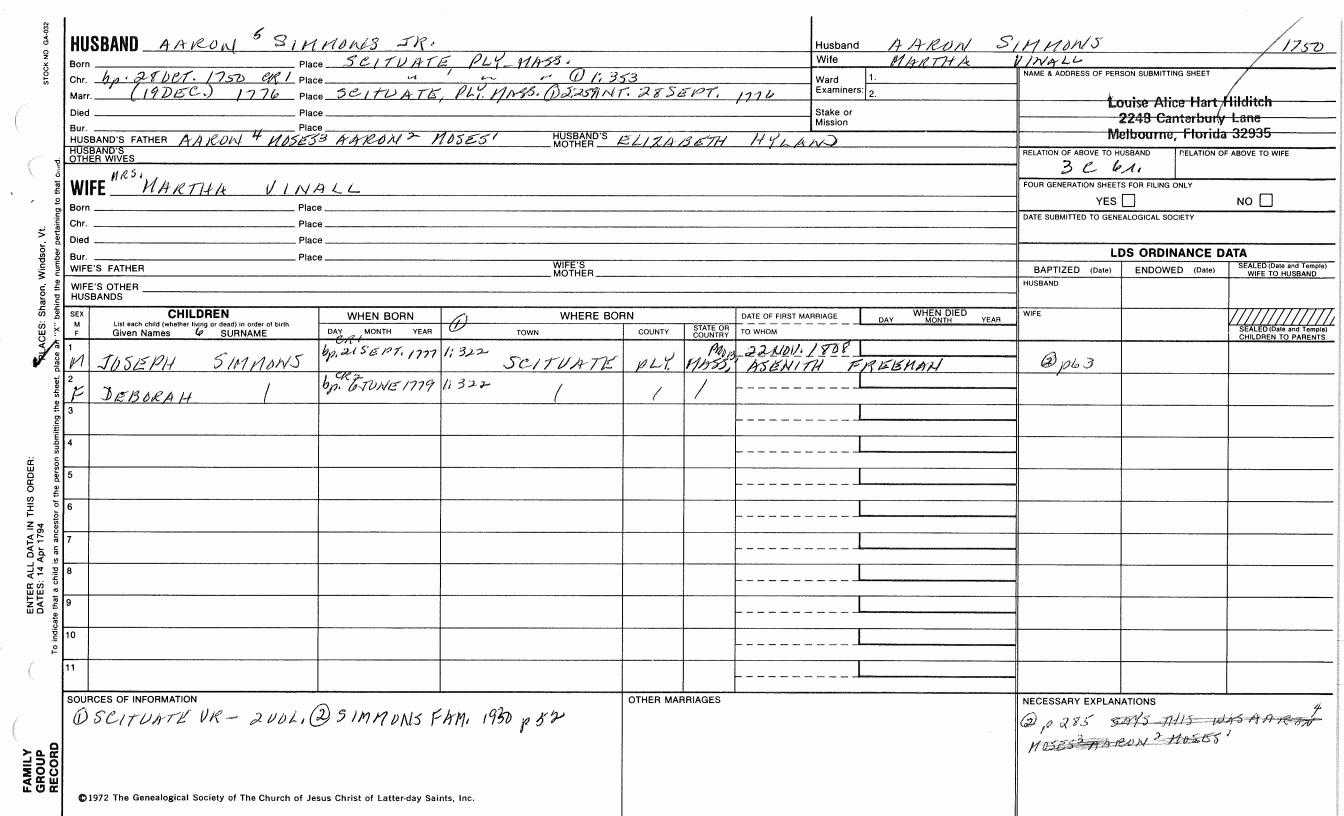 STOCK NO. GA-032
HUSBAND AARON 5 SIMMONS JR.
Born Place SCITUATE PLY. MASS.
Chr. bp. 28 OCT. 1750 CR1 Place " " " ① 1:353
Marr. (19 DEC.) 1776 Place SCITUATE, PLY. MASS. ① 2:259 INT. 28 SEPT. 1776
Died Place
Bur. Place
HUSBAND'S FATHER AARON 4 MOSES 3 AARON 2 MOSES 1 HUSBAND'S MOTHER ELIZABETH HYLAND
HUSBAND'S OTHER WIVES
WIFE MRS. MARTHA VINALL
Born Place
Chr. Place
Died Place
Bur. Place
WIFE'S FATHER WIFE'S MOTHER
WIFE'S OTHER HUSBANDS
Husband AARON SIMMONS 1750
Wife MARTHA VINALL
Ward Examiners: 1.
2.
Stake or Mission
NAME & ADDRESS OF PERSON SUBMITTING SHEET
Louise Alice Hart Hilditch
2248 Canterbury Lane
Melbourne, Florida 32935
RELATION OF ABOVE TO HUSBAND RELATION OF ABOVE TO WIFE
3 C 6r.
FOUR GENERATION SHEETS FOR FILING ONLY
YES NO
DATE SUBMITTED TO GENEALOGICAL SOCIETY
LDS ORDINANCE DATA
BAPTIZED (Date) ENDOWED (Date) SEALED (Date and Temple) WIFE TO HUSBAND
HUSBAND
WIFE
SEALED (Date and Temple) CHILDREN TO PARENTS
SEX M F
CHILDREN
List each child (whether living or dead) in order of birth
Given Names 6 SURNAME
WHEN BORN
DAY MONTH YEAR
① WHERE BORN
TOWN COUNTY STATE OR COUNTRY
DATE OF FIRST MARRIAGE
TO WHOM
WHEN DIED
DAY MONTH YEAR
1 M JOSEPH SIMMONS bp. CR1 21 SEPT. 1777 1:322 SCITUATE PLY. MASS. 22 NOV. 1808
ASENITH FREEMAN
② p63
2 F DEBORAH / bp. CR2 6 JUNE 1779 1:322 / / /
3
4
5
6
7
8
9
10
11
SOURCES OF INFORMATION
① SCITUATE VR- 2 VOL. ② SIMMONS FAM. 1930 p 52
OTHER MARRIAGES
NECESSARY EXPLANATIONS
② p 285 SAYS THIS WAS AARON 4
MOSES 3 AARON 2 MOSES 1
©1972 The Genealogical Society of The Church of Jesus Christ of Latter-day Saints, Inc.
PLACES: Sharon, Windsor, Vt.
ENTER ALL DATA IN THIS ORDER:
DATES: 14 Apr 1794
To indicate that a child is an ancestor of the person submitting the sheet, place an "X" behind the number pertaining to that child.
FAMILY
GROUP
RECORD